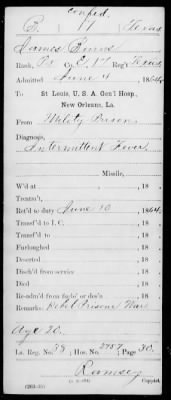 Confed.
B. 17 Texas
James Burns
Rank, Pvt Co E, 17 Reg't Texas
Admitted June 4, 1864,
To St Louis, U. S. A. Gen'l Hosp.,
New Orleans, La.
From Military Prison
Diagnosis,
Intermittent Fever
Missile,
W'd at , 18
Treatm't,
Ret'd to duty June 10, 1864.
Transf'd to I. C. , 18
Transf'd to , 18
Furloughed , 18
Deserted , 18
Disch'd from service , 18
Died , 18
Re-adm'd from furlo' or des'n , 18
Remarks: Rebel Prisoner War
Age 20.
La. Reg. No. 98; Hos. No. 2757; Page 30.
Ramsey
Copyist.